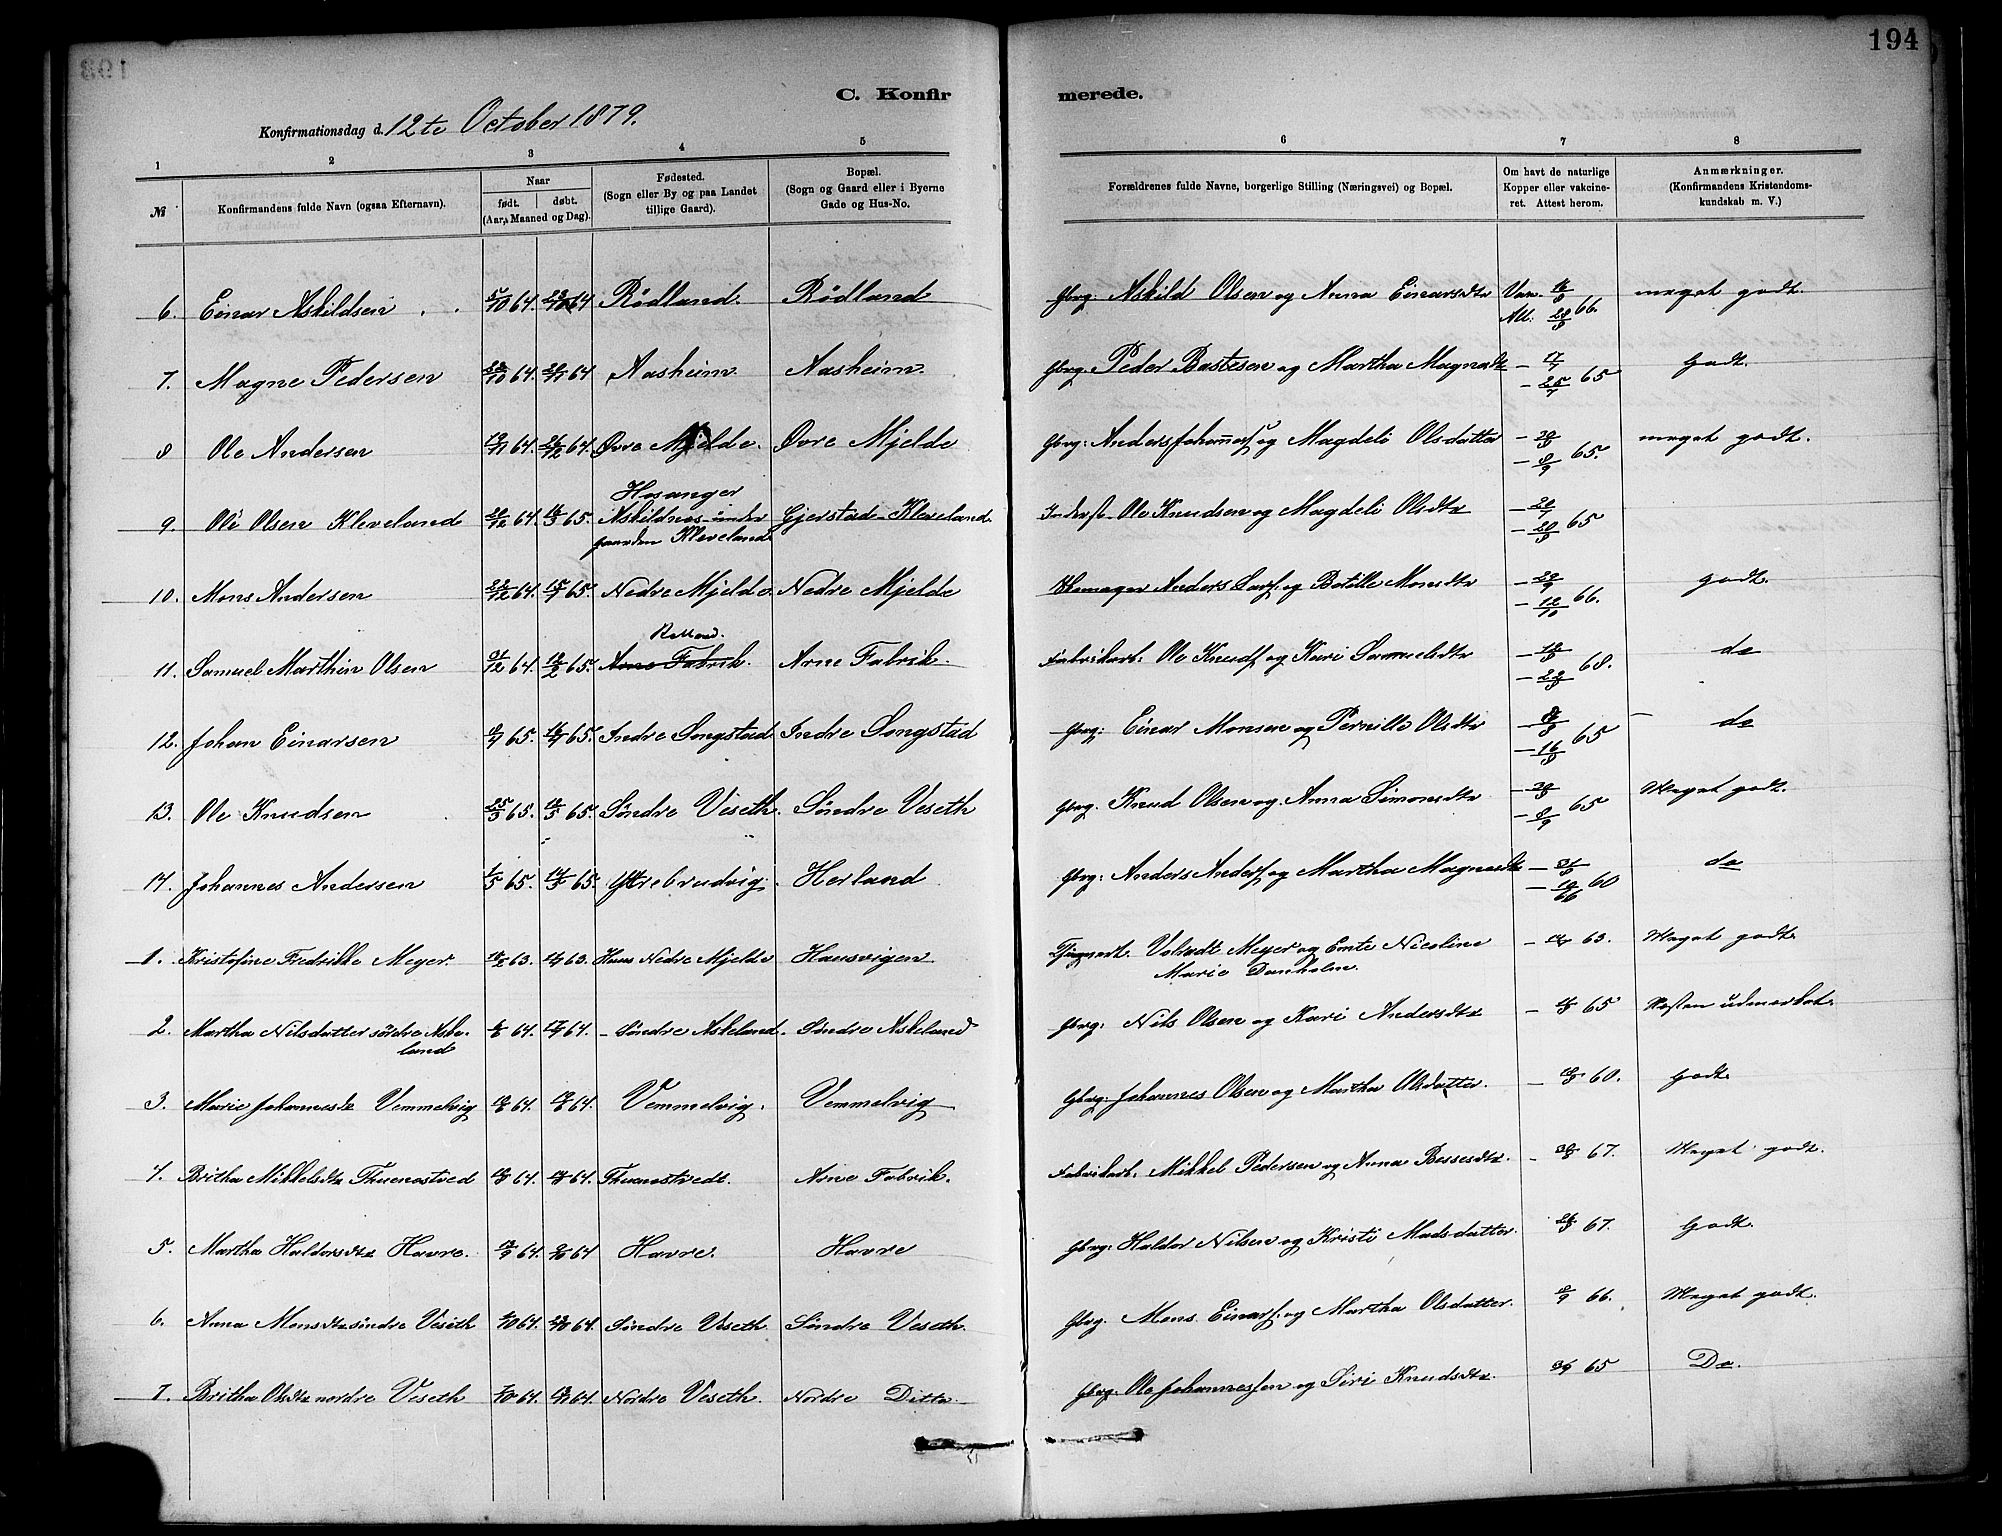 194
C. Konfir
merede.
Konfirmationsdag d. 12te October 1879.
1 2 3 4 5 6 7 8
№
Konfirmandens fulde Navn (ogsaa Efternavn).
Naar
født. døbt.
(Aar, Maaned og Dag).
Fødested.
(Sogn eller By og paa Landet
tillige Gaard).
Bopæl.
(Sogn og Gaard eller i Byerne
Gade og Hus-No.
Forældrenes fulde Navne, borgerlige Stilling (Næringsvei) og Bopæl.
Om havt de naturlige
Kopper eller vakcine-
ret. Attest herom.
Anmærkninger.
(Konfirmandens Kristendoms-
kundskab m. V.)
6. Einar Askildsen 5/10 64. 64 Rödland. Rödland Gbrg: Askild Olsen og Anna Einarsdtr Vac. meget godt.
Att: 28/8 66.
7. Magne Pedersen 64. 64 Aasheim. Aasheim. Gbrg. Peder Bastesen og Martha Magnsdtr - 17/7 Godt.
- 25/7 65
8 Ole Andersen 64. 64. Øvre Mjelde. Øvre Mjelde Gbrg: Anders Johannesf og Magdeli Olsdatter meget godt.
- 8/9 65.
Hosanger
9. Ole Olsen Kleveland 64. 65. Askildnes under Gjerstad Kleveland. Inderst Ole Knudsen og Magdeli Olsdtr
gaarden Kleveland 65
10. Mons Andersen 64. 65. Nedre Mjelde Nedre Mjelde Anders Larsf. og Botille Monsdtr godt.
- 12/10 66.
11. Samuel Marthin Olsen 31/12 64. 65. Arne Fabrik. Arne Fabrik. Fabrikarb: Ole Knudsf og Kari Samuelsdtr do
68.
12. Johan Einarsen 65. 65. Indre Songstad Indre Songstad Gbrg: Einar Monsen og Pernille Olsdtr do
- 16/8 65
13. Ole Knudsen 25/3 65. 65. Söndre Viseth. Söndre Veseth Gbrg. Knud Olsen og Anna Simonsdtr Meget godt.
- 8/9 65
14. Johannes Andersen 1/5 65. 65. Ytrebrudvig. Herland Gbrg: Anders Andersf og Martha Magnesdtr do
1. Kristofine Fredrikke Meyer. 63. 63. Haus Nedre Mjelde Hausvigen Volradt Meyer og Emte Nicoline 63. Meget godt.
Marie Danholm.
2. Martha Nilsdatter söndre Aske- 64. 64. Söndre Askeland. Söndre Askeland Gbrg: Nils Olsen og Kari Andersdtr 65 Næsten udmerket.
land
3. Marie Johannesdtr Vemmelvig 64. 64. Vemmelvig. Vemmelvig Gbrg: Johannes Olsen og Martha Olsdatter. 60. godt.
4. Britha Mikkelsdtr Thuenestved 64. 64. Thuenestvedt. Arne Fabrik. Fabrikarb: Mikkel Pedersen og Anna Bessesdtr. 67. Meget godt.
5. Martha Haldorsdtr Havre. 64. 64 Havre. Havre Gbrg: Haldor Nilsen og Kristi Madsdatter. 67. Godt.
6. Anna Monsdtr söndre Veseth 64. 64. Söndre Veseth Söndre Veseth. Gbrg. Mons Einarsf. og Martha Olsdatter. 8/9 66. Meget godt.
7. Britha Olsdtr nordre Veseth 64. 64. Nordre Veseth. Nordre Ditto Gbrg: Ole Johannessen og Siri Knudsdtr. 65 Do.